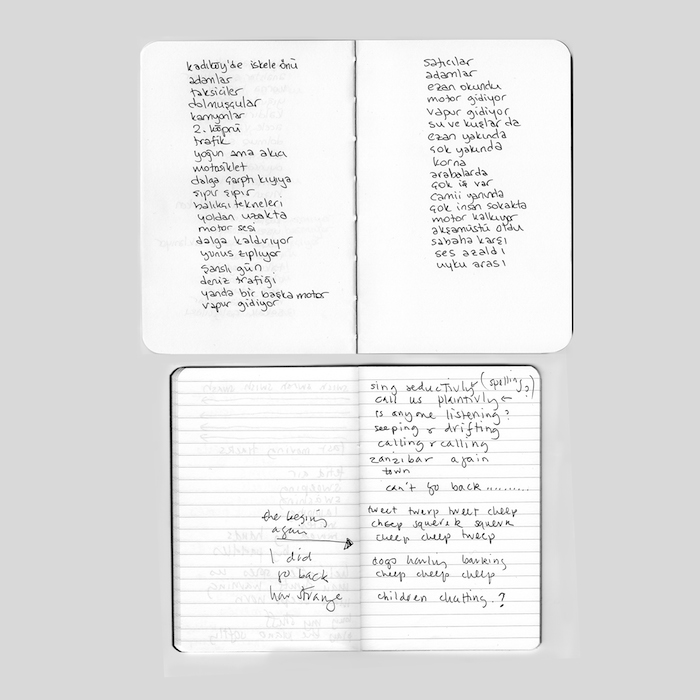 kadıköy'de iskele önü
adamlar
taksiciler
dolmuşçular
kamyonlar
2. köprü
trafik
yoğun ama akıcı
motosiklet
dalga çarptı kıyıya
şıpır şıpır
balıkçı tekneleri
yoldan uzakta
motor sesi
dalga kaldırıyor
yunus zıplıyor
şanslı gün
deniz trafiği
yanda bir başka motor
vapur gidiyor
satıcılar
adamlar
ezan okundu
motor gidiyor
vapur gidiyor
su ve kuşlar da
ezan yakında
çok yakında
korna
arabalarda
çok iş var
camii yanında
çok insan sokakta
motor kalkıyor
akşamüstü oldu
sabaha karşı
ses azaldı
uyku arası
the begins
again
I did
go back
how strange
sing seductivly (spelling?)
call us plaintivly ←
is anyone listening?
seeping & drifting
calling & calling
zanzibar again
town
can't go back..........
tweet twerp tweet cheep
cheep squerek squerk
cheep cheep tweep
dogs howling barking
cheep cheep cheep
children chatting.?